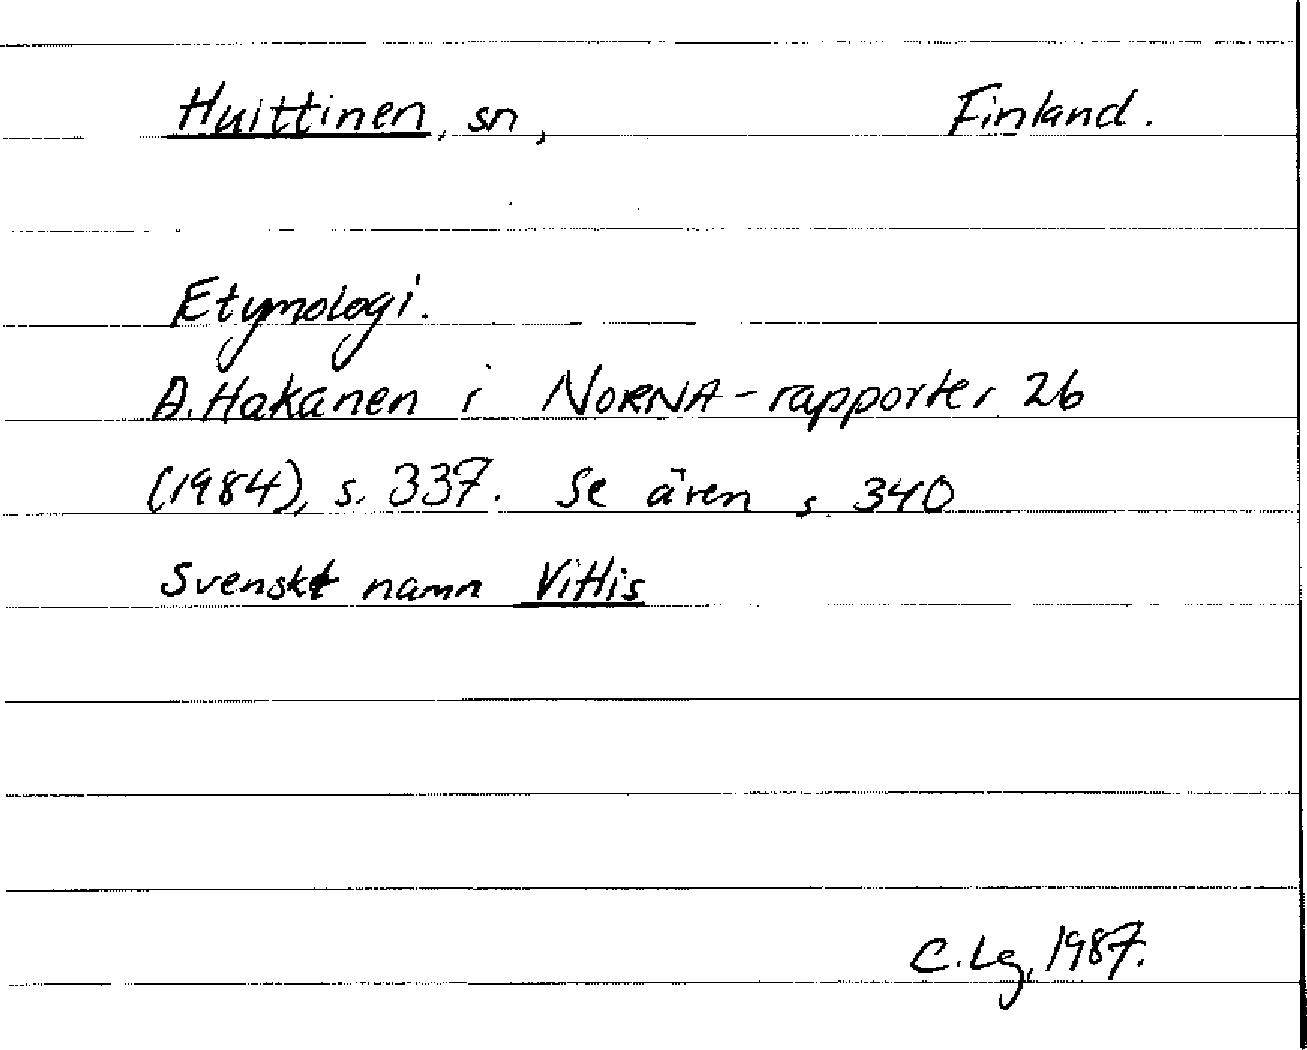 Huittinen, sn, Finland.
Etymologi.
A. Hakanen i NORNA-rapporter 26
(1984), s. 337. Se även s. 340
Svenskt namn Vittis
C. Lg, 1987.